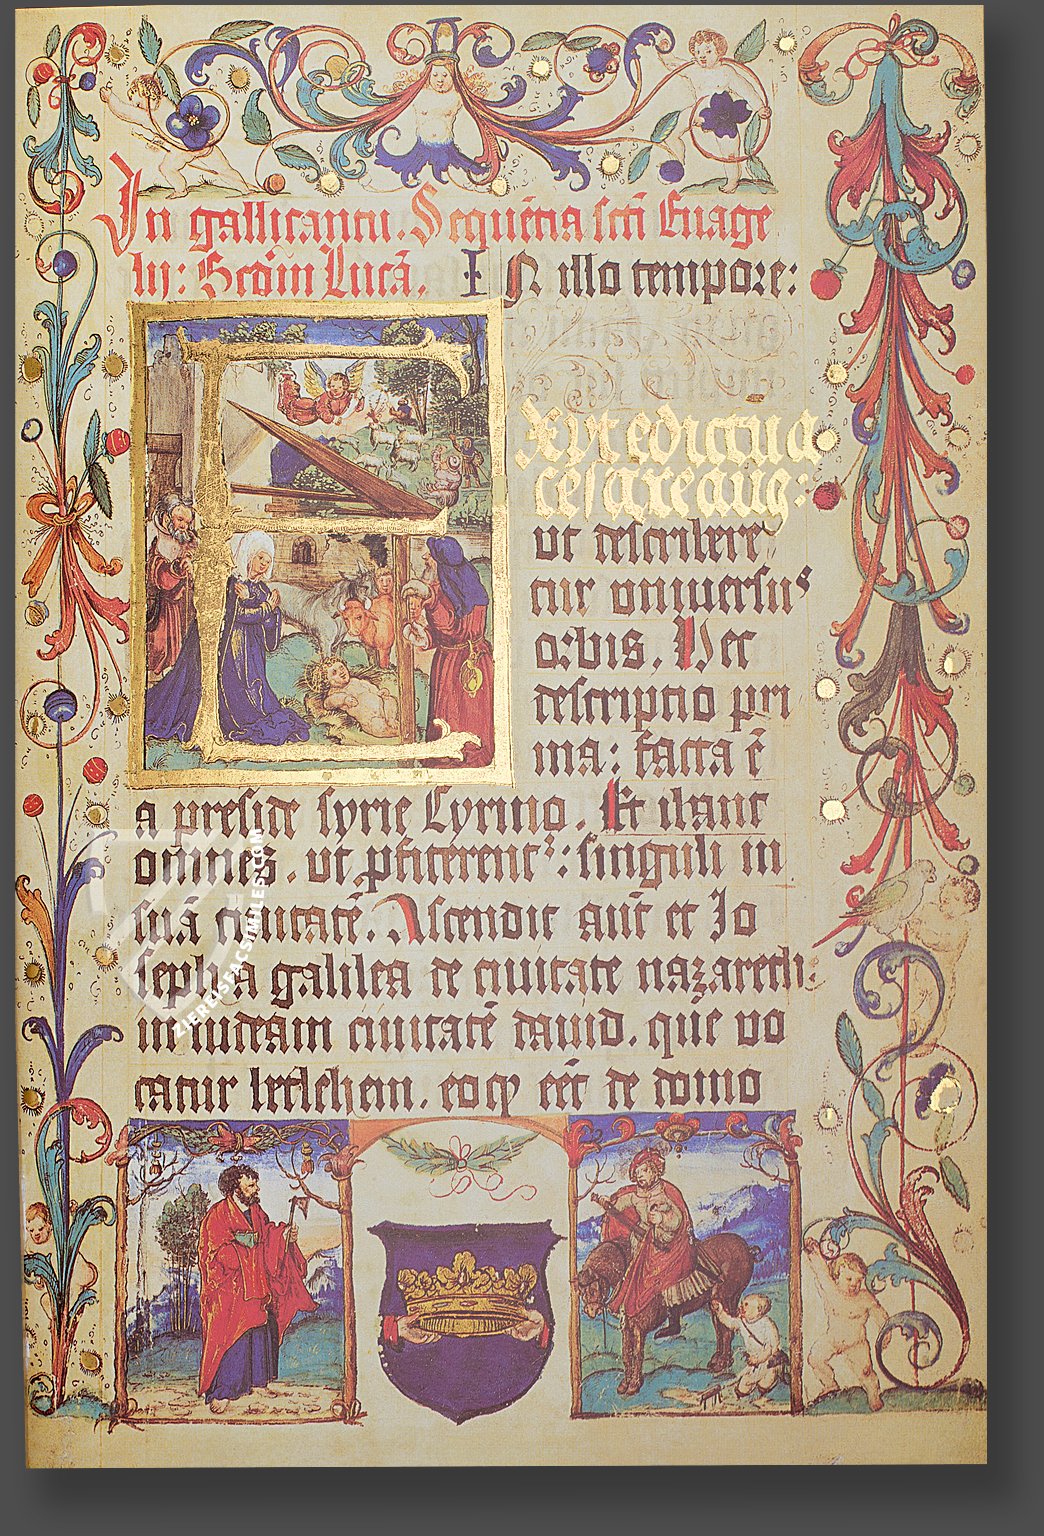 In gallicantu. Sequēcia sc̄ti Euāge
lij: Scd̄m Lucā. IN illo tempore:
EXyt edictū a
cesare aug:
ut describere
tur uniuersus
orbis. Hec
descriptio pri
ma: facta ē
a preside syrie Cyrino. Et ibant
omnes. ut ꝓfiterentᷣ: singuli in
suā ciuitatē. Ascendit aūt et Jo
seph a galilea de ciuitate nazareth:
in iudeam ciuitatē dauid. que uo
catur betlehem. eo ꝙ eēt de domo
ZIEREISFACSIMILES.COM